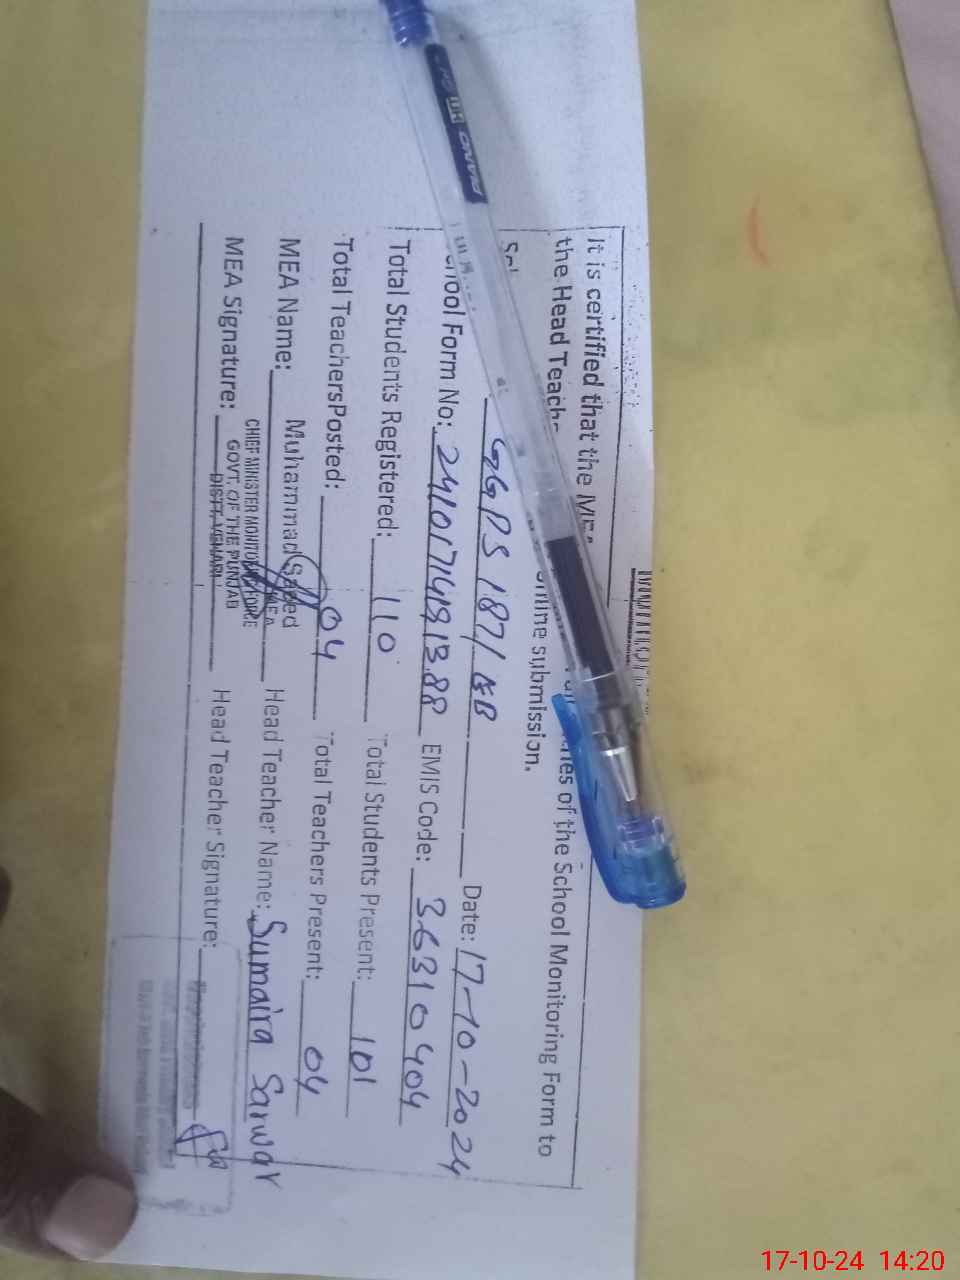 It is certified that the
the Head Teach
ries of the School Monitoring Form to
online submission.
GGPS 187/EB Date: 17-10-2024
hool Form No: 241017141913.88 EMIS Code: 36310404
Total Students Registered: 110 Total Students Present: 101
Total TeachersPosted: 04 Total Teachers Present: 04
MEA Name: Muhammad Saeed Head Teacher Name: Sumaira Sarwar
MEA
CHIEF MINISTER MONITORING FORCE
GOVT. OF THE PUNJAB
DISTT. VEHARI
MEA Signature: Head Teacher Signature:
PIANO
17-10-24 14:20